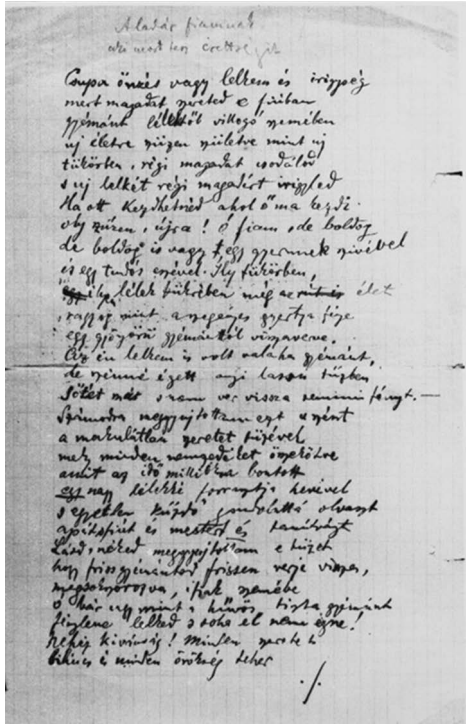 Aladár fiamnak
aki most tesz érettségit
Csupa önzés vagy lelkem és irigység
mert magadat szereted e fiúban
gyémánt lélektől villogó szemében
uj életre szüzen születve mint uj
tükörben, régi magadat csodálod
s uj lelkét régi magadért irigyled
Ha ott kezdhetnéd ahol ő ma kezdi
oly szüzen, ujra! Ó fiam, de boldog
de boldog is vagy, egy gyermek szivével
és egy tudós eszével. Ily tükörben,
ily lélek tükrében még az élet
ragyog mint a szegényes gyertya fénye
egy gyönyörü gyémántból visszaverve.
Az én lelkem is volt valaha gyémánt,
de szénné égett lassu tüzben
Sötét már s nem ver vissza semmi fényt. —
Számodra meggyujtottam ezt a szént
a makulátlan szeretet tüzével
mely minden nemzedéket összekötve
amit az idő millókra bontott
egy nagy lélekké forrasztja hevével
s egyetlen küzdő gondolattá olvaszt
apát s fiút és mestert és tanitványt
Lásd, néked meggyujtottam e tüzet
hogy friss gyémántod frissen verje vissza,
megsokszorozva, szemébe
ó bár ugy mint a hűvös, tiszta gyémánt
lelked s soha el nem égne!
kivánság! Minden szeretet
bilincs s minden örökség teher
./.